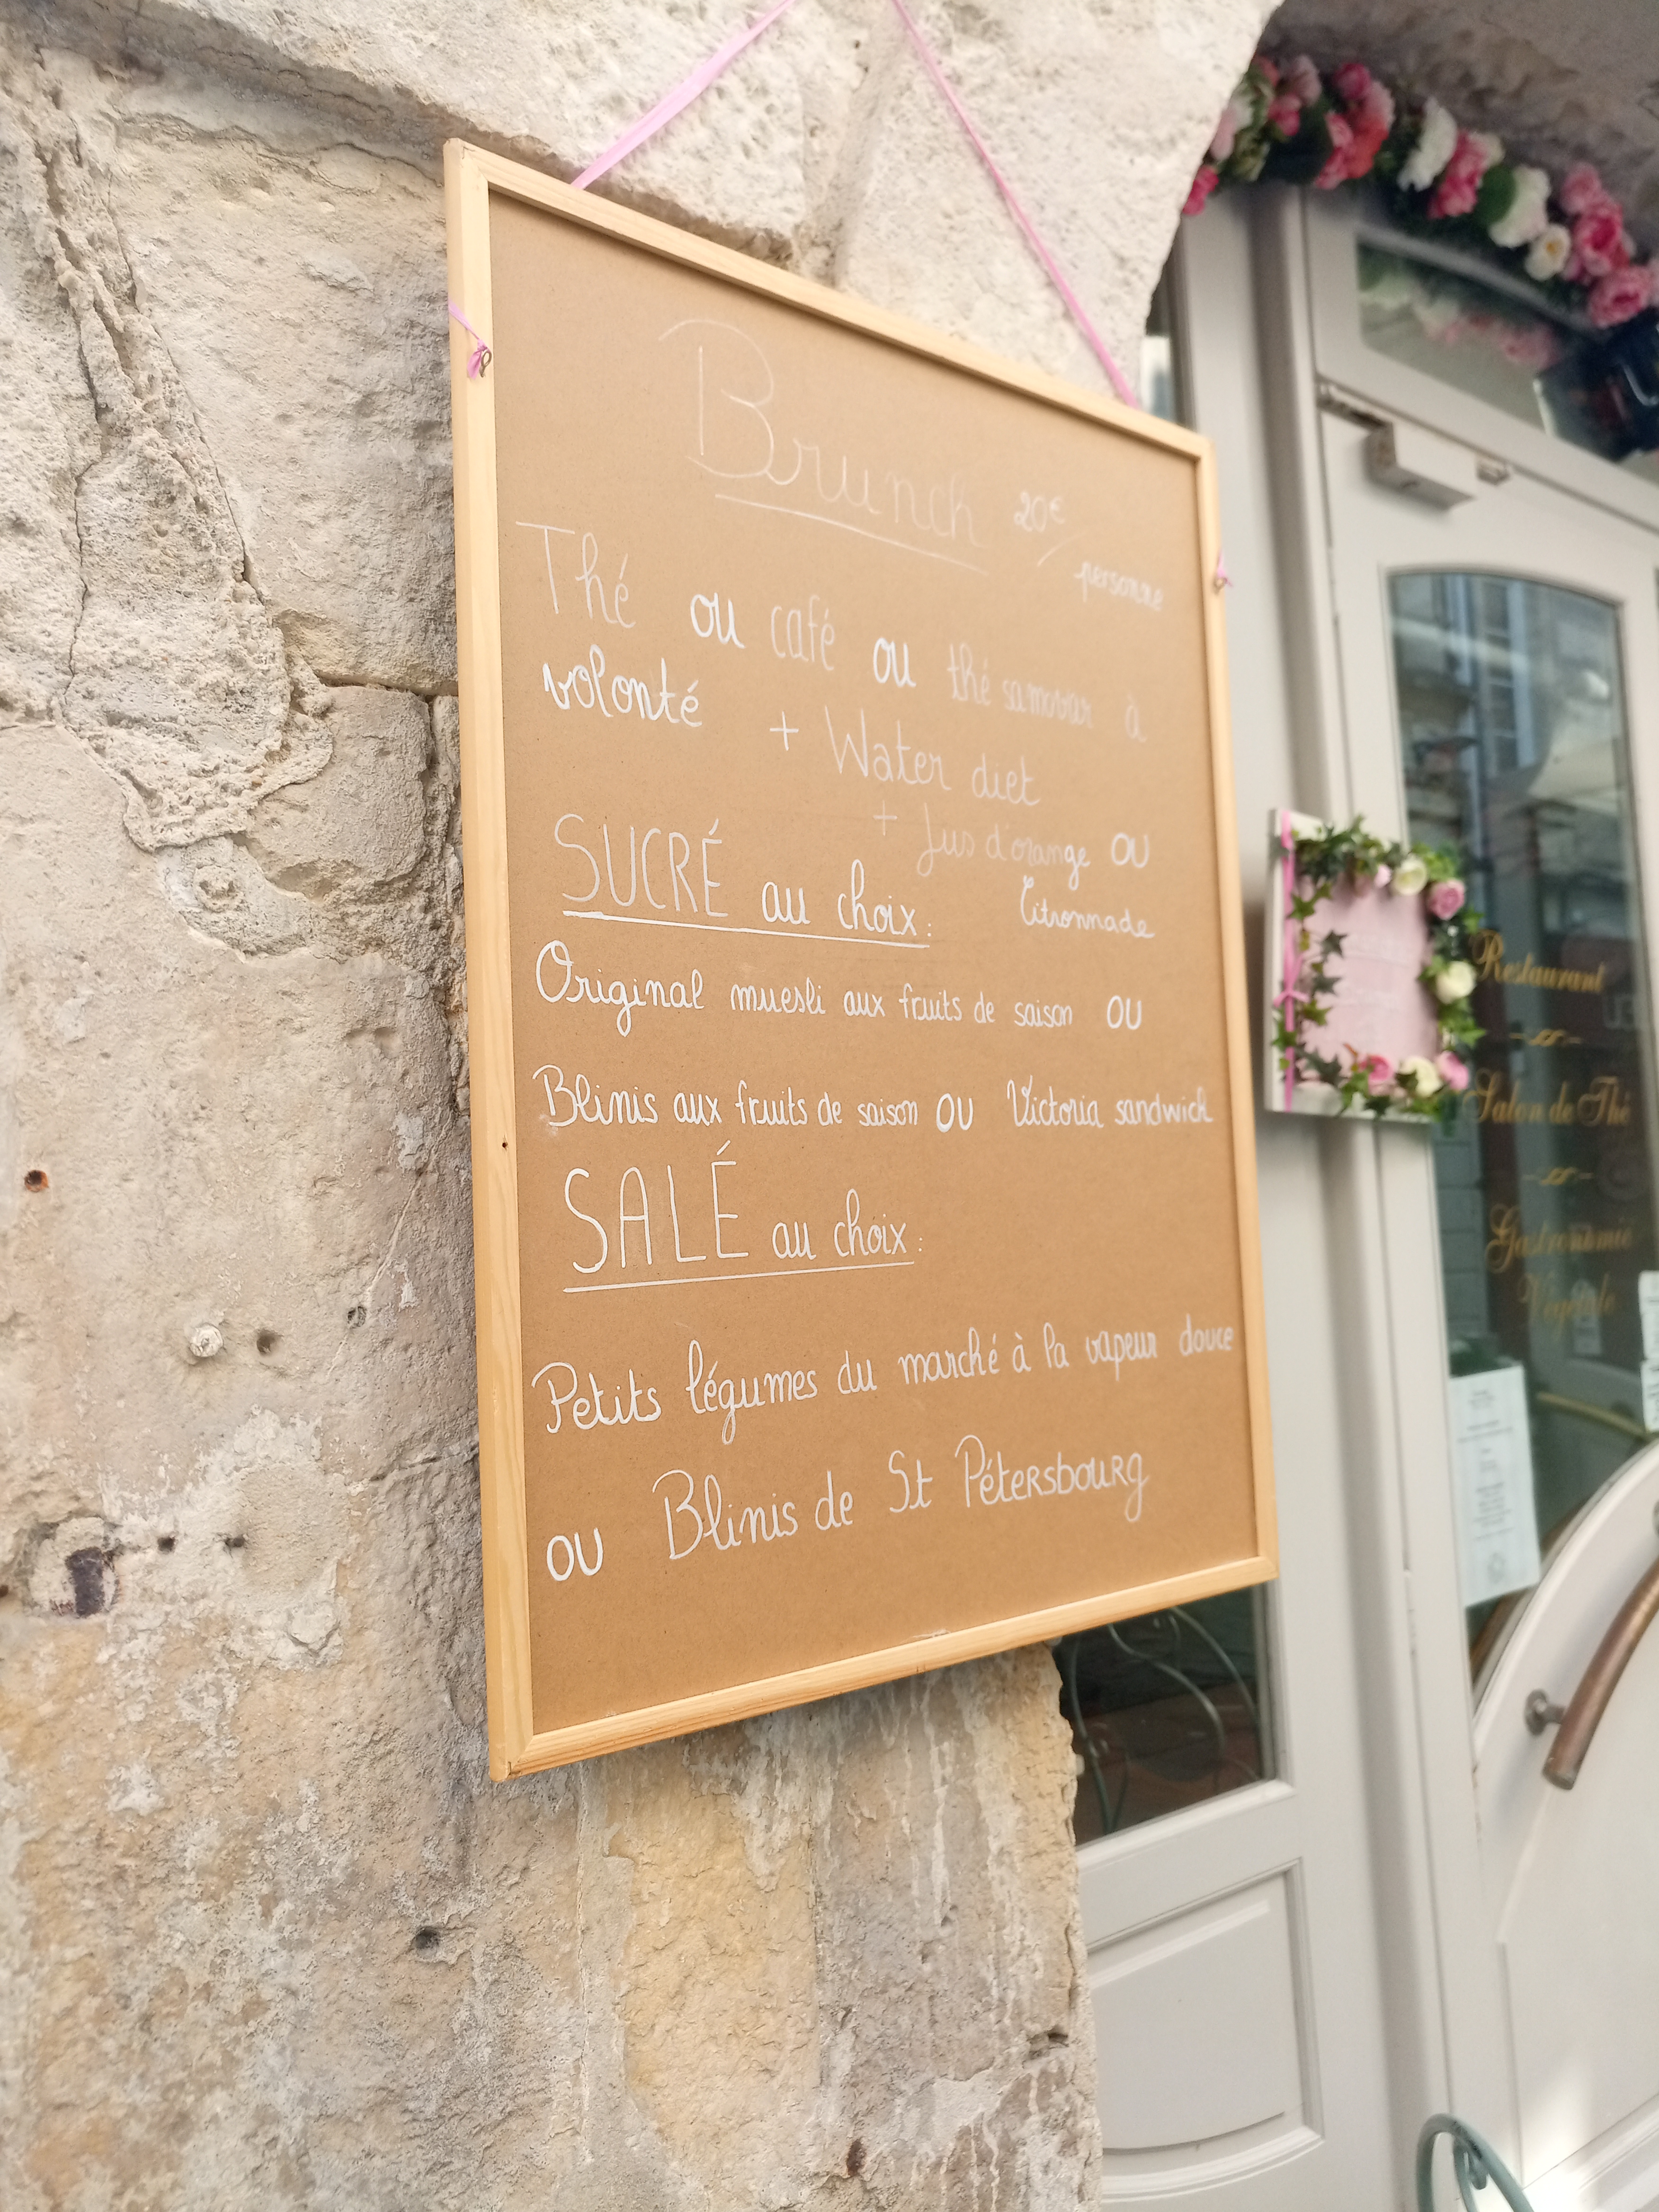 Brunch 20€/personne
Thé ou café ou thé samovar à
volonté + Water diet
+ Jus d'orange OU
Citronnade
SUCRÉ au choix:
Original muesli aux fruits de saison OU
Blinis aux fruits de saison OU Victoria sandwich
SALÉ au choix:
Petits légumes du marché à la vapeur douce
OU Blinis de St Pétersbourg
Restaurant
Salon de Thé
Gastronomie
Végétale